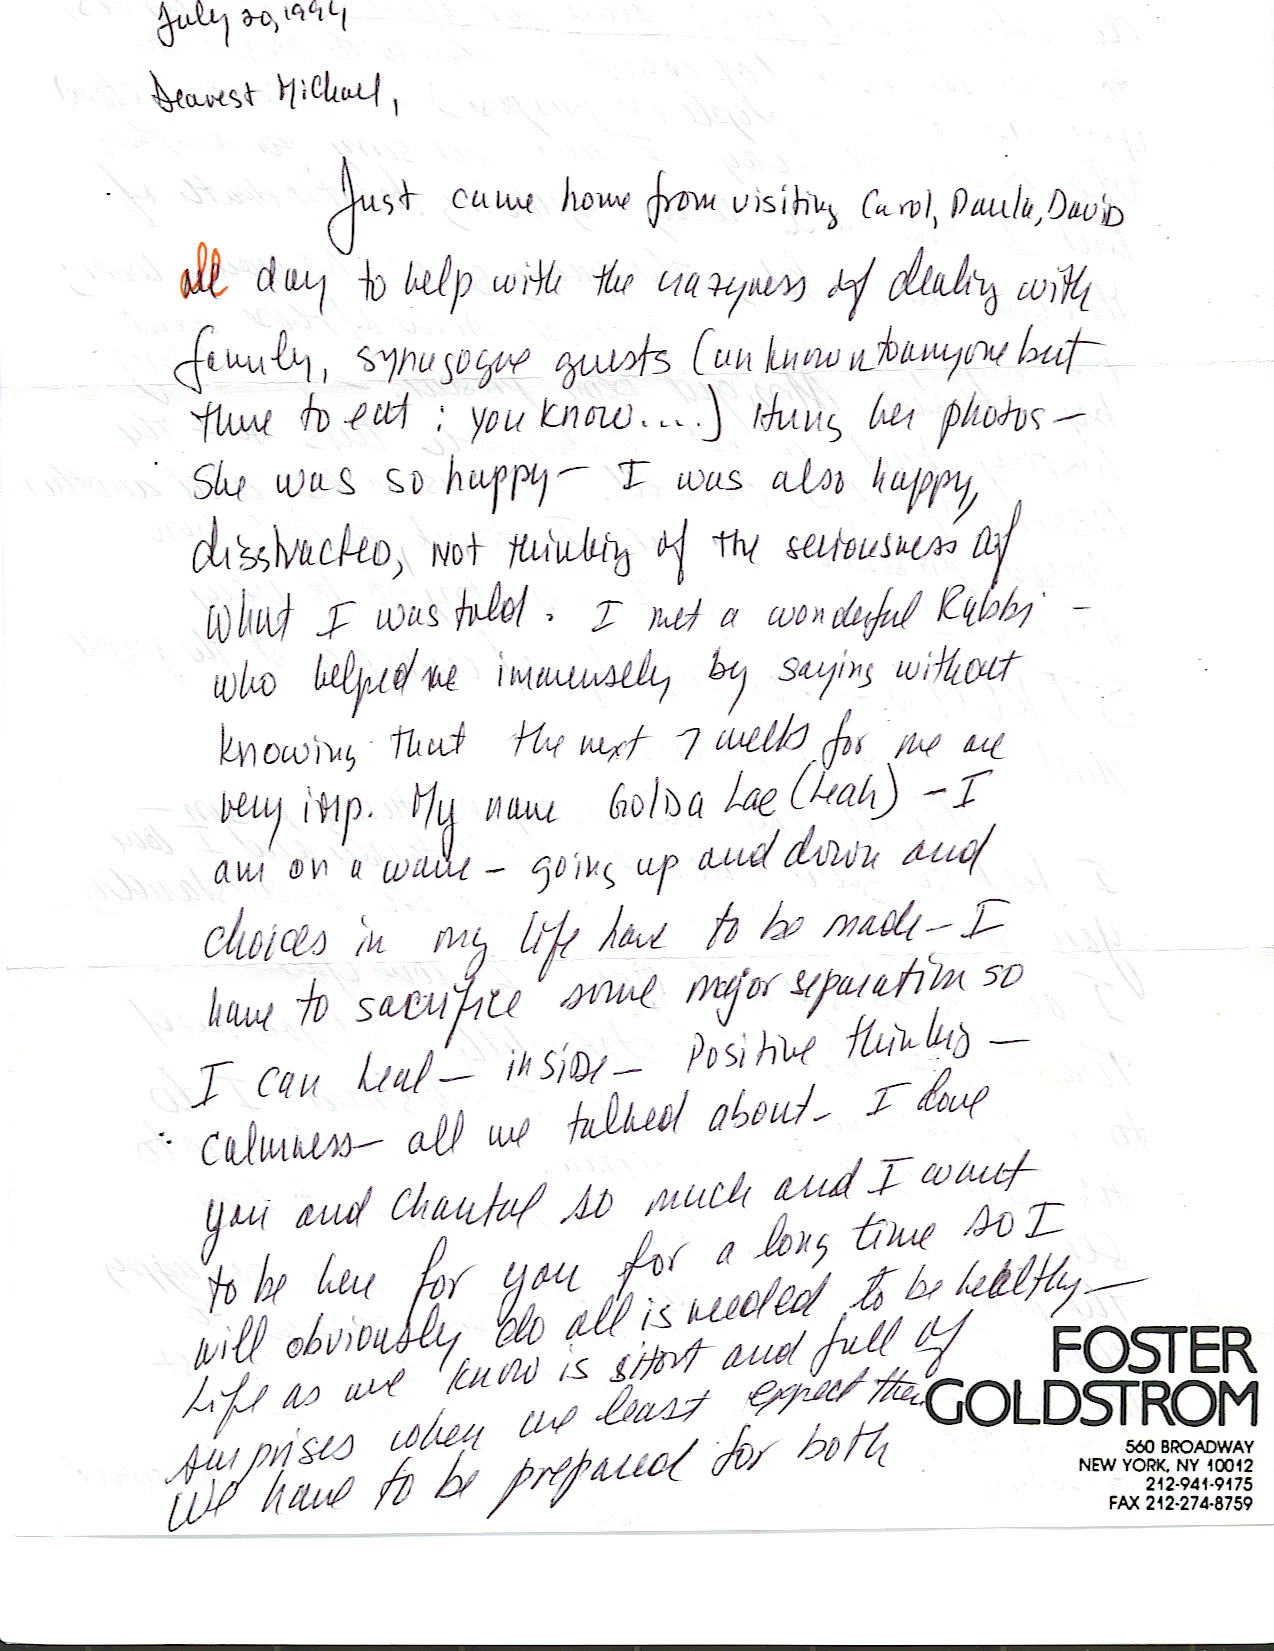 July 20, 1994
Dearest Michael,
Just came home from visiting Carol, Paula, David
all day to help with the crazyness of dealing with
family, synagogue guests (unknown to anyone but
there to eat : you know....) Hung her photos —
She was so happy — I was also happy,
disstracted, Not thinking of the seriousness of
what I was told. I met a wonderful Rabbi —
who helped me immensely by saying without
knowing that the next 7 weeks for me are
very imp. My name Golda Lae (Leah) — I
am on a wave — going up and down and
choices in my life have to be made — I
have to sacrifice some major separation so
I can heal — inside — Positive thinking —
Calmness — all we talked about — I love
you and Chantal so much and I want
to be here for you for a long time so I
will obviously do all is needed to be healthy —
Life as we know is short and full of
surprises when we least expect them
We have to be prepared for both
FOSTER
GOLDSTROM
560 BROADWAY
NEW YORK, NY 10012
212-941-9175
FAX 212-274-8759